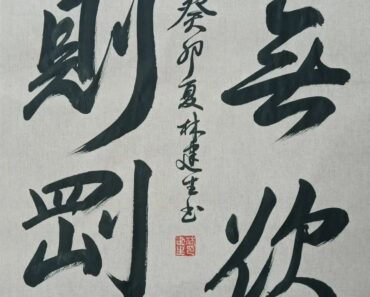 無欲
則剛
癸卯夏林建生书